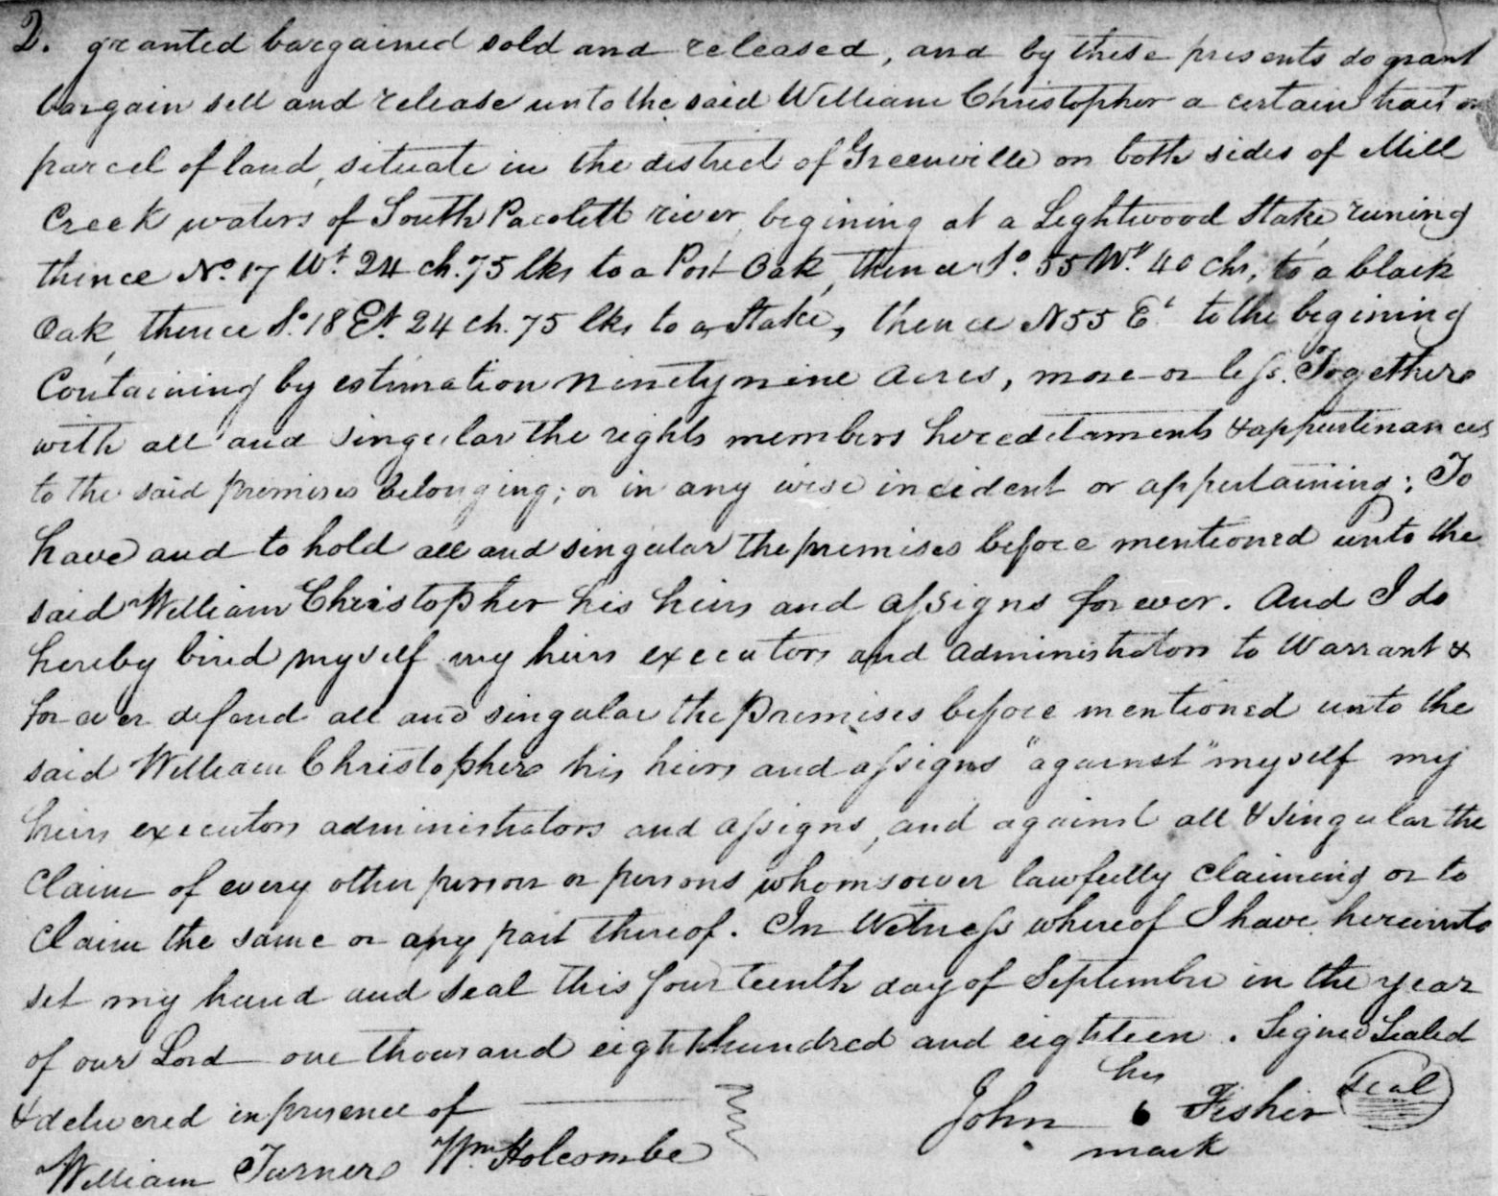 2. granted bargained sold and released, and by these presents do grant
bargain sell and release unto the said William Christopher a certain tract or
parcel of land, situate in the district of Greenville on both sides of Mill
Creek waters of South Pacolett river, begining at a Lightwood Stake runing
thence No. 17 Wt. 24 ch. 75 lks to a Post Oak, thence So. 55 Wt. 40 chs, to a black
Oak, thence So. 18 Et. 24 ch. 75 lks to a Stake, thence N 55 Et to the begining
Containing by estimation ninety nine Acres, more or less. Together
with all and singular the rights members hereditaments & appurtenances
to the said premises belonging; or in any wise incident or appertaining; To
have and to hold all and singular the premises before mentioned unto the
said William Christopher his heirs and assigns forever. And I do
hereby bind myself my heirs executors and administrators to Warrant &
forever defend all and singular the Premises before mentioned unto the
said William Christopher his heirs and assigns "against" myself my
heirs executors administrators and assigns, and against all & singular the
Claim of every other person or persons whomsoever lawfully claiming or to
Claim the same or any part thereof. In Witness whereof I have hereunto
set my hand and seal this fourteenth day of September in the year
of our Lord one thousand eight hundred and eighteen. Signed Sealed
& delivered in presence of
his
John 6 Fisher Seal
mark
William Turner Wm Holcombe